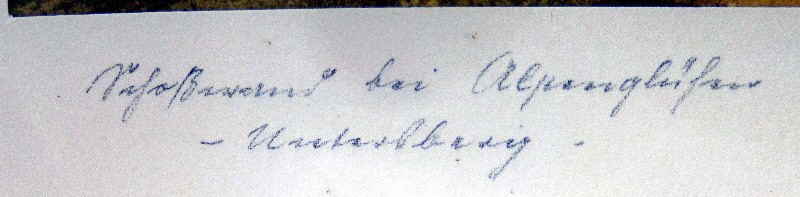 Schoßwand bei Alpenglühen
- Untersberg -